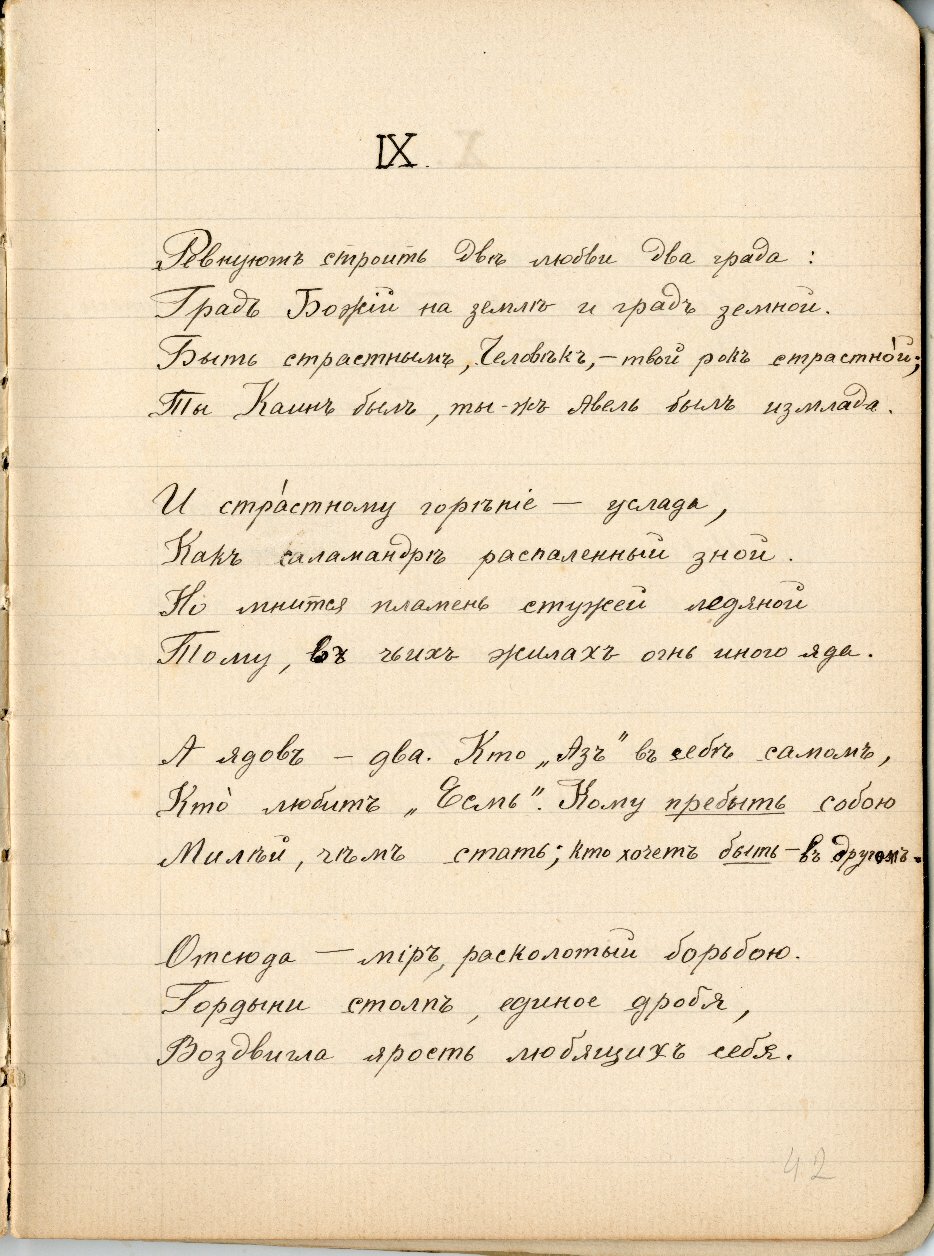 IX.
Ревнуютъ строить двѣ любви два града:
Градъ Божій на землѣ и градъ земной.
Быть страстнымъ, Человѣкъ,—твой рокъ страстно́й;
Ты Каинъ былъ, ты-жъ Авель былъ измлада.
И стра́стному горѣніе — услада,
Какъ саламандрѣ распаленный зной.
Но мнится пламень стужей ледяной
Тому, въ чьихъ жилахъ огнь иного яда.
А ядовъ — два. Кто „Азъ" въ себѣ самомъ,
Кто̀ любитъ „Есмь". Кому пребыть собою
Милѣй, чѣмъ стать; кто хочетъ быть—въ другомъ.
Отсюда — міръ, расколотый борьбою.
Гордыни столпъ, единое дробя,
Воздвигла ярость любящихъ себя.
42